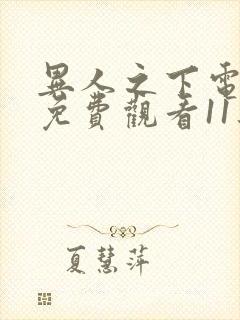 異人之下電
免費觀看11
夏慧萍